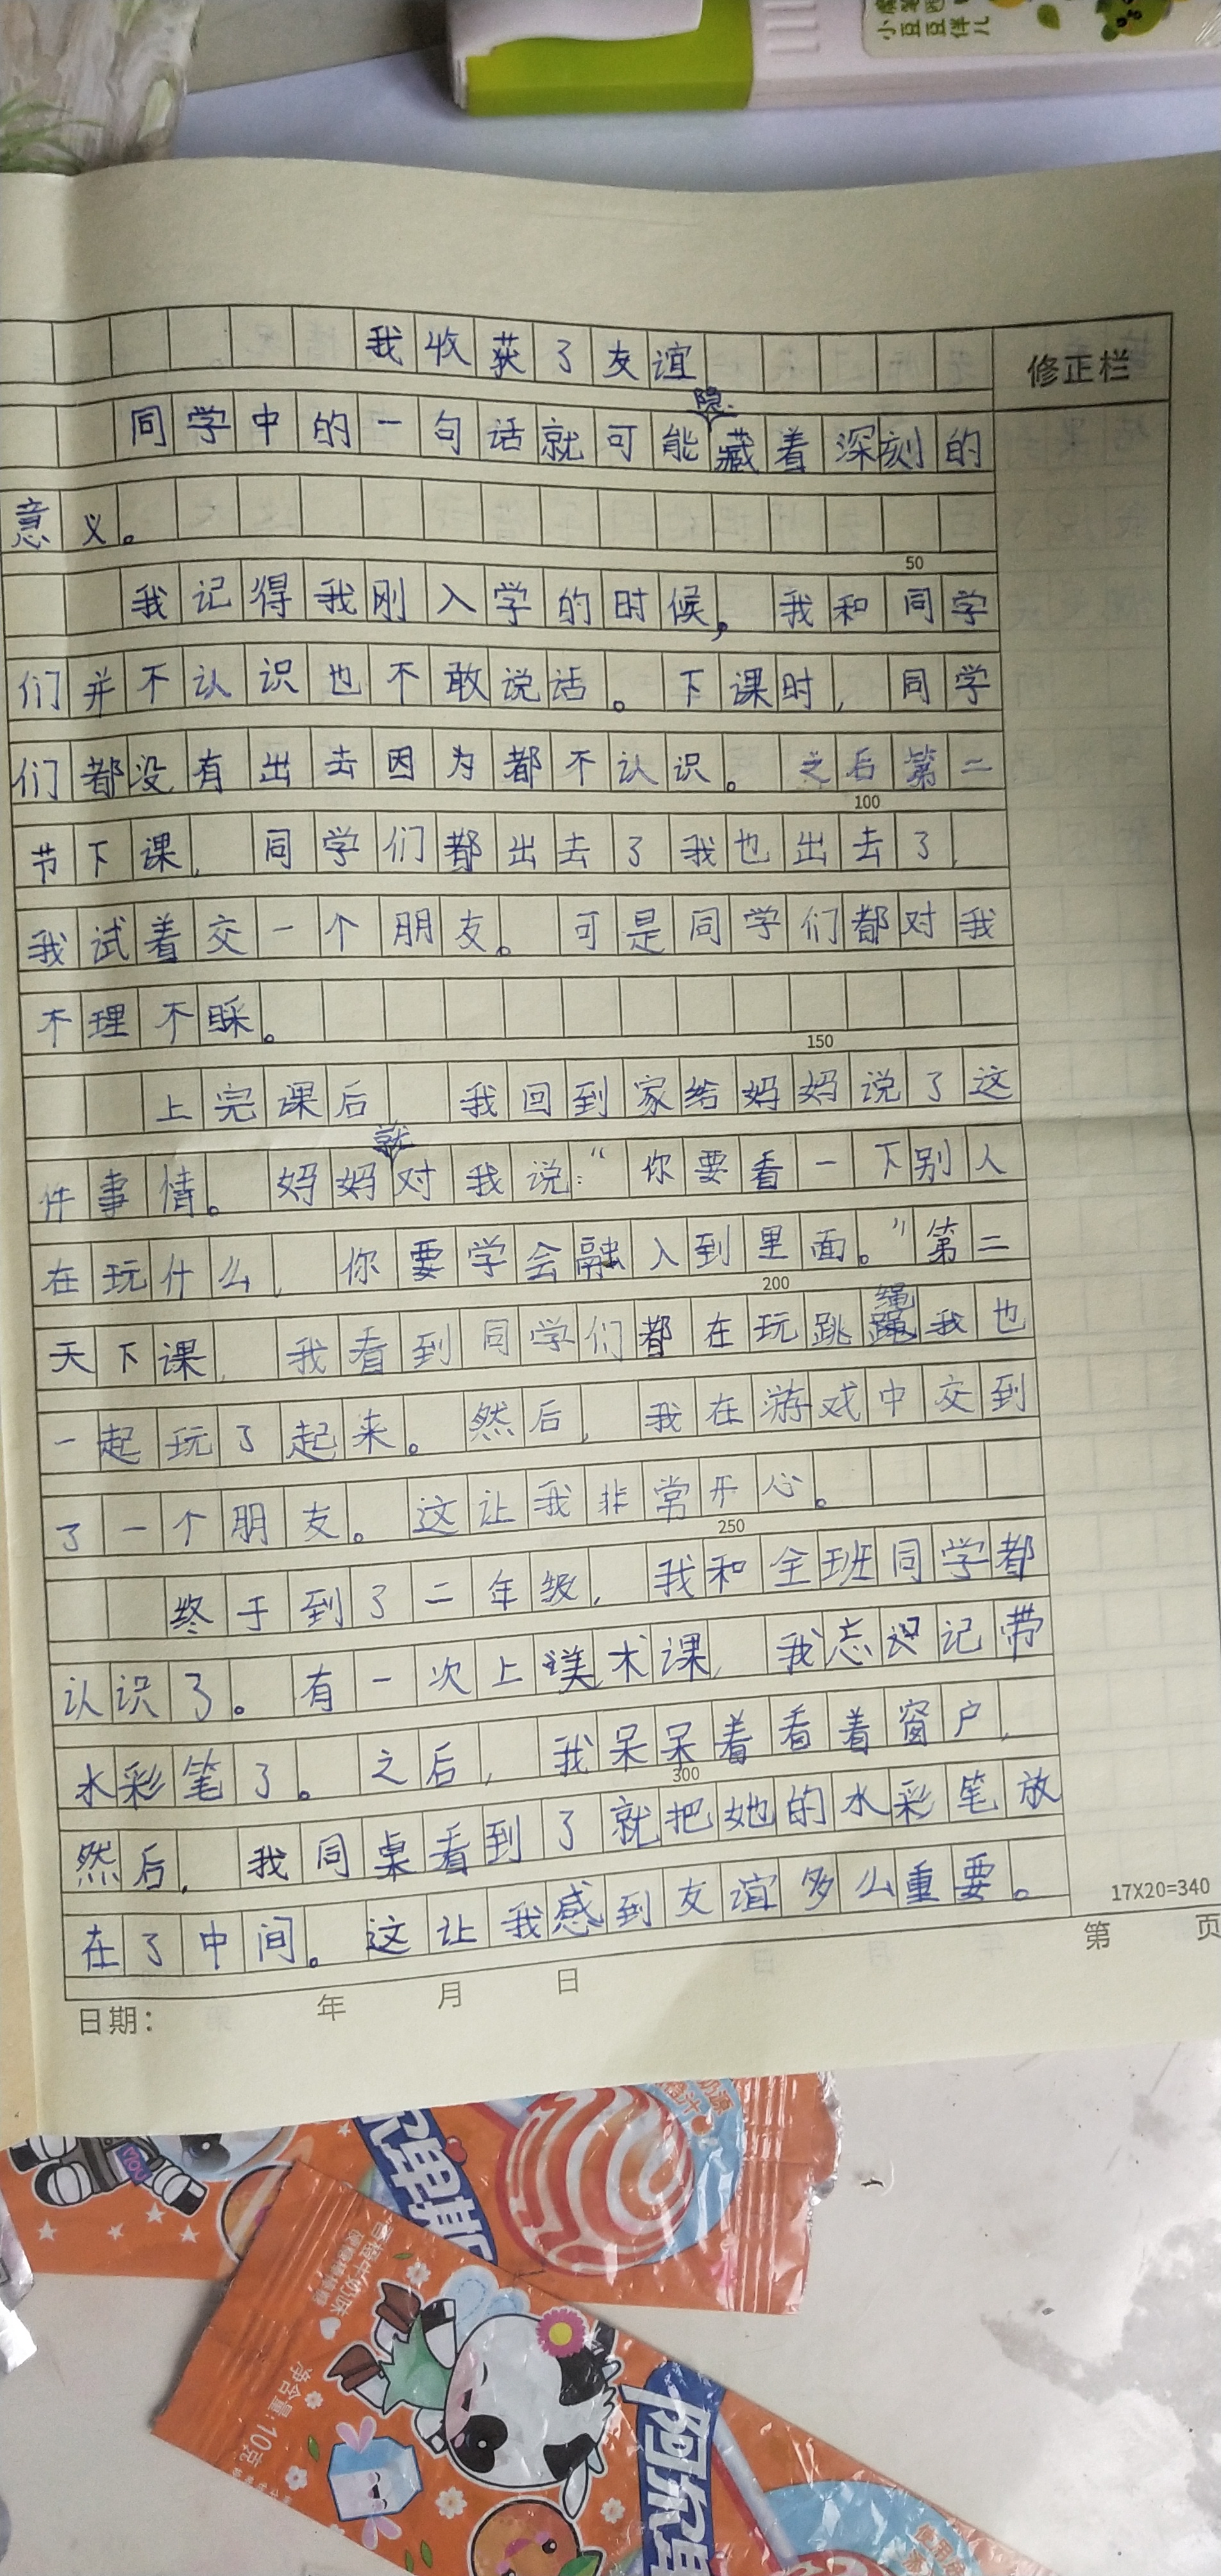 小豆豆伴儿
我收获了友谊
修正栏
同学中的一句话就可能隐藏着深刻的
意义。
50
我记得我刚入学的时候,我和同学
们并不认识也不敢说话。下课时,同学
们都没有出去因为都不认识。之后第二
100
节下课,同学们都出去了我也出去了,
我试着交一个朋友。可是同学们都对我
不理不睬。
150
上完课后,我回到家给妈妈说了这
件事情。妈妈就对我说:“你要看一下别人
在玩什么,你要学会融入到里面。”第二
200
天下课,我看到同学们都在玩跳绳我也
一起玩了起来。然后,我在游戏中交到
了一个朋友。这让我非常开心。
250
终于到了二年级,我和全班同学都
认识了。有一次上美术课,我忘记带
水彩笔了。之后,我呆呆着看着窗户,
300
然后,我同桌看到了就把她的水彩笔放
在了中间。这让我感到友谊多么重要。
17X20=340
第 页
日期: 年 月 日
YOU
尔卑斯
香橙牛奶味
硬糖棒棒糖
净含量:10克
阿尔卑